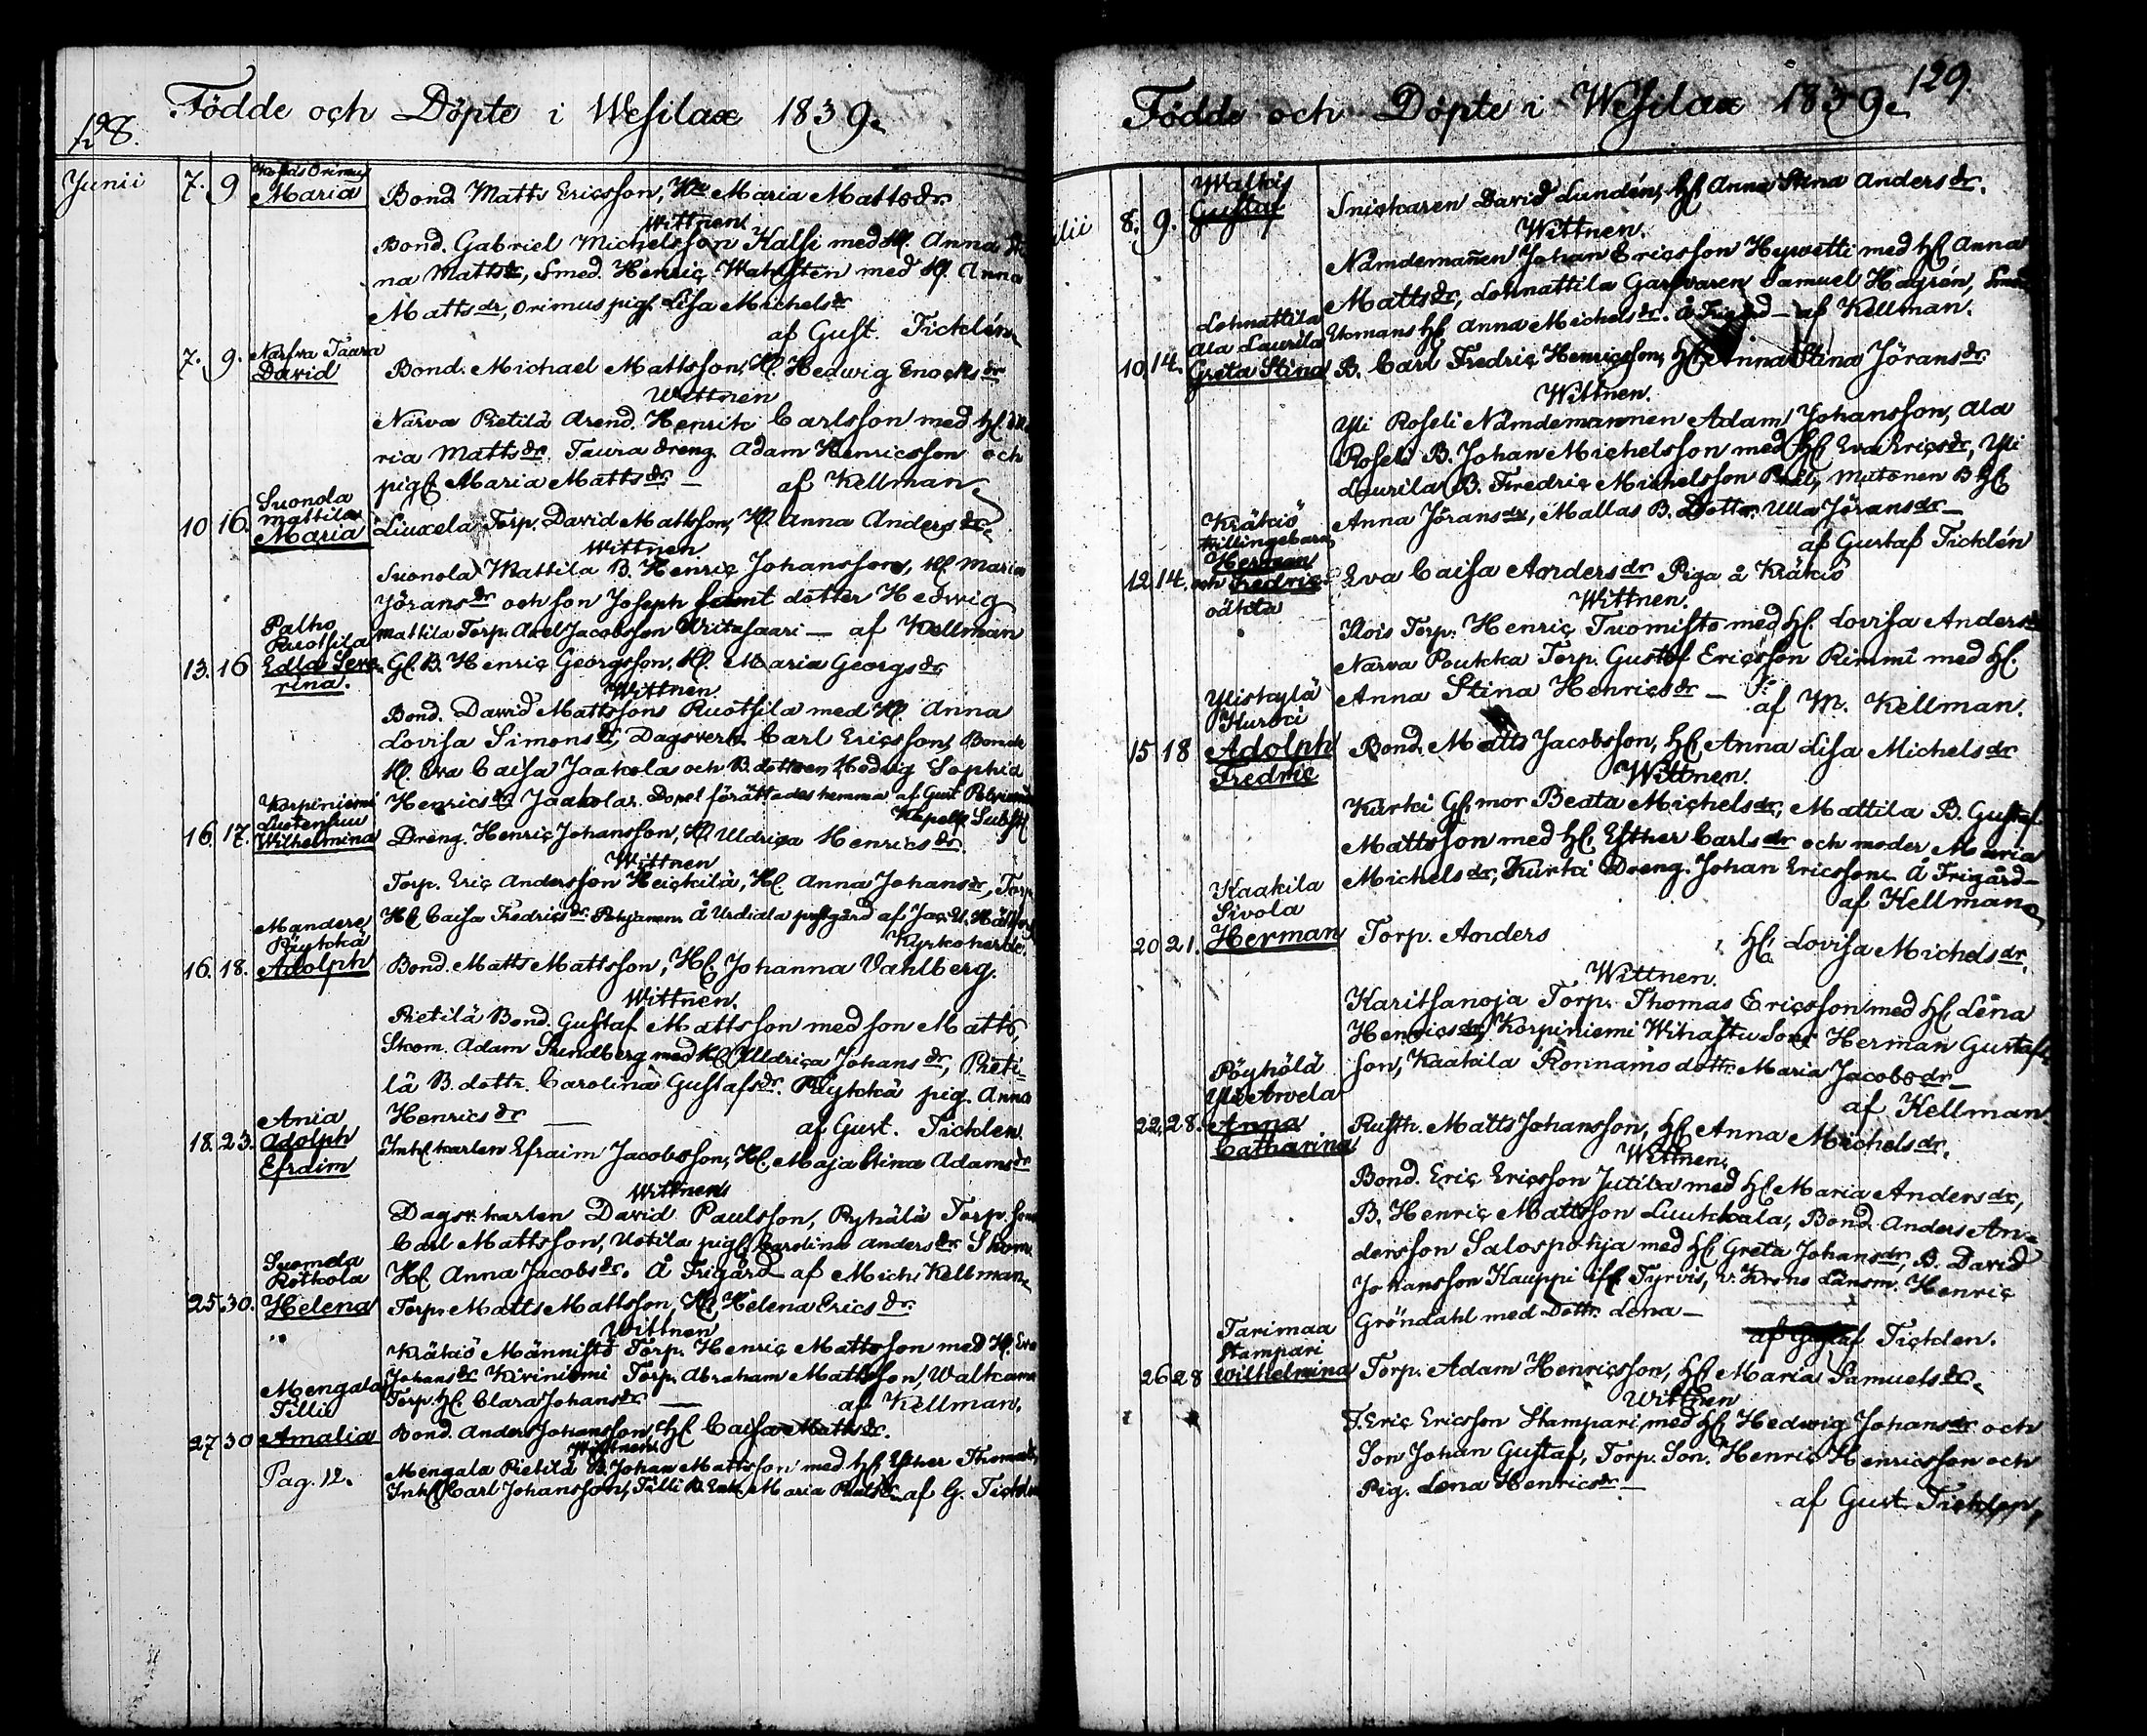 128.
Födde och Döpte i Wesilax 1839.
Junii 7. 9 Maria Bond. Matts Ericsson, Hu Maria Mattsdr
Wittnen
Bond. Gabriel Michelsson Kalsi med H. Anna Sti
na Mattsdr, Smed. Henric Wahlsten med H. Anna
Mattsdr, Orimus pig. Lisa Michelsdr
af Gust. Ticklén
7. 9. Narfva Taara
David Bond. Michael Mattsson, H. Hedwig Enochsdr
Wittnen
Narva Pietilä Arend. Henric Carlsson med H. Ma
ria Mattsdr. Taura dreng. Adam Henricsson och
pig. Maria Mattsdr — af Kellman
Suonola
Mattila
10 16. Maria Liuxela Torp. David Mattsson, H. Anna Andersdr
Wittnen
Suonola Mattila B. Henric Johansson, H. Maria
Jöransdr och son Joseph samt dotter Hedwig
Mattila Torp. Axel Jacobsson Uritasaari — af Kellman
Palho
Ruotsila
13. 16 Edla Seve
rina. Gl. B. Henric Georgsson, H. Maria Georgsdr
Wittnen
Bond. David Mattssons Ruotsila med H. Anna
Lovisa Simonsdr, Dagsverk. Carl Ericsson, Bonde
H. Eva Caisa Jaakola och B. dottren Hedvig Sophia
Henricsdr Jaakola. Dopet förättades hemma af Gust
Kapell
Korpiniemi
16. 17. Wilhelmina Dreng. Henric Johansson, H. Uldrica Henricsdr.
Wittnen
Torp. Eric Andersson Heickilä, H. Anna Johansdr, Torp.
H. Caisa Fredricsdr Pohjanen. Å Urdiala prestgård af Jac.
Kyrkoherde.
Mandere
Päykkä
16. 18. Adolph Bond. Matts Mattsson, H. Johanna Vahlberg.
Wittnen.
Pietilä Bond. Gustaf Mattsson med son Matts,
Skom. Adam Sundberg med H. Uldrica Johansdr, Pieti-
lä B. dottr. Carolina Gustafsdr. Päykkä pig. Anna
Henricsdr — af Gust. Ticklen
Ania
18. 23. Adolph
Efraim Inh. karlen Efraim Jacobsson, H. Maja Stina Adamsdr
Wittnen
Dagsv. karlen David Paulsson, Pyhälä Torp. son
Carl Mattsson, Uotila pig. Carolina Andersdr Skom.
H. Anna Jacobsdr. Å Frigård af Mich. Kellman
Suomela
Rötkola
25. 30. Helena Torp. Matts Mattsson, H. Helena Ericsdr.
Wittnen
Kräkiö Männistö Torp. Henric Mattsson med H. Eva
Johansdr Kiviniemi Torp. Abraham Mattsson, Walkama
Torp. H. Clara Johansdr — af Kellman.
Mengala
Tilli
27 30 Amalia Bond. Anders Johansson, H. Caisa Mattsdr.
Wittnen
Mengala Pietilä B. Johan Mattsson med H. Esther Thomasdr
Inh. Carl Johansson, Tilli B. Enk. Maria Paulsdr af G. Ticklen
Pag. 12.
129.
Födde och Döpte i Wesilax 1839.
Walkis
8. 9. Gustaf Snickaren David Lundén, H. Anna Stina Andersdr.
Wittnen.
Nämdemannen Johan Ericsson Heywetti med H. Anna
Mattsdr, Lohnattila Garfvaren Samuel Hagrén,
H. Anna Michelsdr. Å Frigård — af Kellman.
Lohnattila
Ala Laurila
10. 14. Greta Stina B. Carl Fredric Henricsson, H. Anna Stina Jöransdr
Wittnen.
Yli Roseli Nämdemannen Adam Johansson, Ala
Roseli B. Johan Michelsson med H. Eva Ericsdr, Yli
Laurila B. Fredric Michelsson Mutonen B H.
Anna Jöransdr, Mallas B. Dottr. Ulla Jöransdr —
af Gustaf Ticklén
Kräkiö
Trillingebarn
Herman
12. 14. och Fredric
oäkta Eva Caisa Andersdr Piga å Kräkiö
Wittnen.
Ilois Torp. Henric Tuomisto med H. Lovisa Andersdr
Narva Poukka Torp. Gustaf Ericsson Rimmi med H.
Anna Stina Henricsdr —
af M. Kellman.
Yliskylä
Kurki
15 18 Adolph
Fredric Bond. Matts Jacobsson, H. Anna Lisa Michelsdr
Wittnen.
Kurki Gl. mor Beata Michelsdr, Mattila B. Gustaf
Mattsson med H. Esther Carlsdr och moder Maria
Michelsdr, Kurki Dreng. Johan Ericsson. Å Frigård —
af Kellman
Kaakila
Sivola
20 21. Herman Torp. Anders , H. Lovisa Michelsdr.
Wittnen.
Karitsanoja Torp. Thomas Ericsson med H. Lena
Henricsdr, Korpiniemi Son Herman Gustafs-
son, Kaakila Ronnamo dottr. Maria Jacobsdr —
af Kellman
Pöyhölä
Yli Arvela
22. 28. Anna
Catharina Rusth. Matts Johansson, H. Anna Michelsdr.
Wittnen.
Bond. Eric Ericsson Jutila med H. Maria Andersdr,
B. Henric Mattsson Luukkala, Bond. Anders An-
dersson Salospohja med H. Greta Johansdr, B. David
Johansson Kauppi ifr. Tyrvis, v. Krono Länsm. Henric
Gröndahl med Dottr. Lena —
af Gustaf Ticklen.
Tarimaa
Stampari
26 28 Wilhelmina Torp. Adam Henricsson, H. Maria Samuelsdr.
Wittnen
T. Eric Ericsson Stampari med H. Hedwig Johansdr och
Son Johan Gustaf, Torp. Son. Henric Henricsson och
Pig. Lena Henricsdr —
af Gust. Ticklen